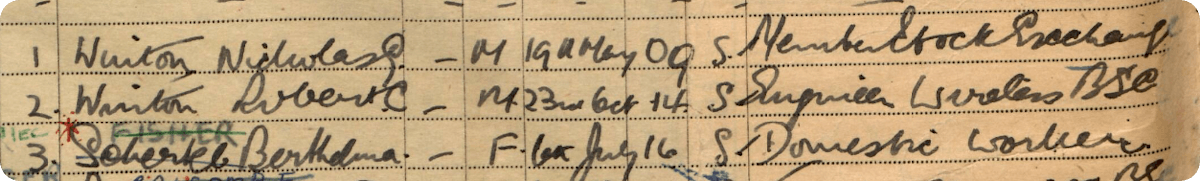 1 Winton Nicholas G. — M 19th May 09 S. Member Stock Exchange
2. Winton Robert C — M. 23rd Oct 14 S Engineer Wireless BSc
FISHER
3. Berthelma. — F. July 16 S. Domestic worker